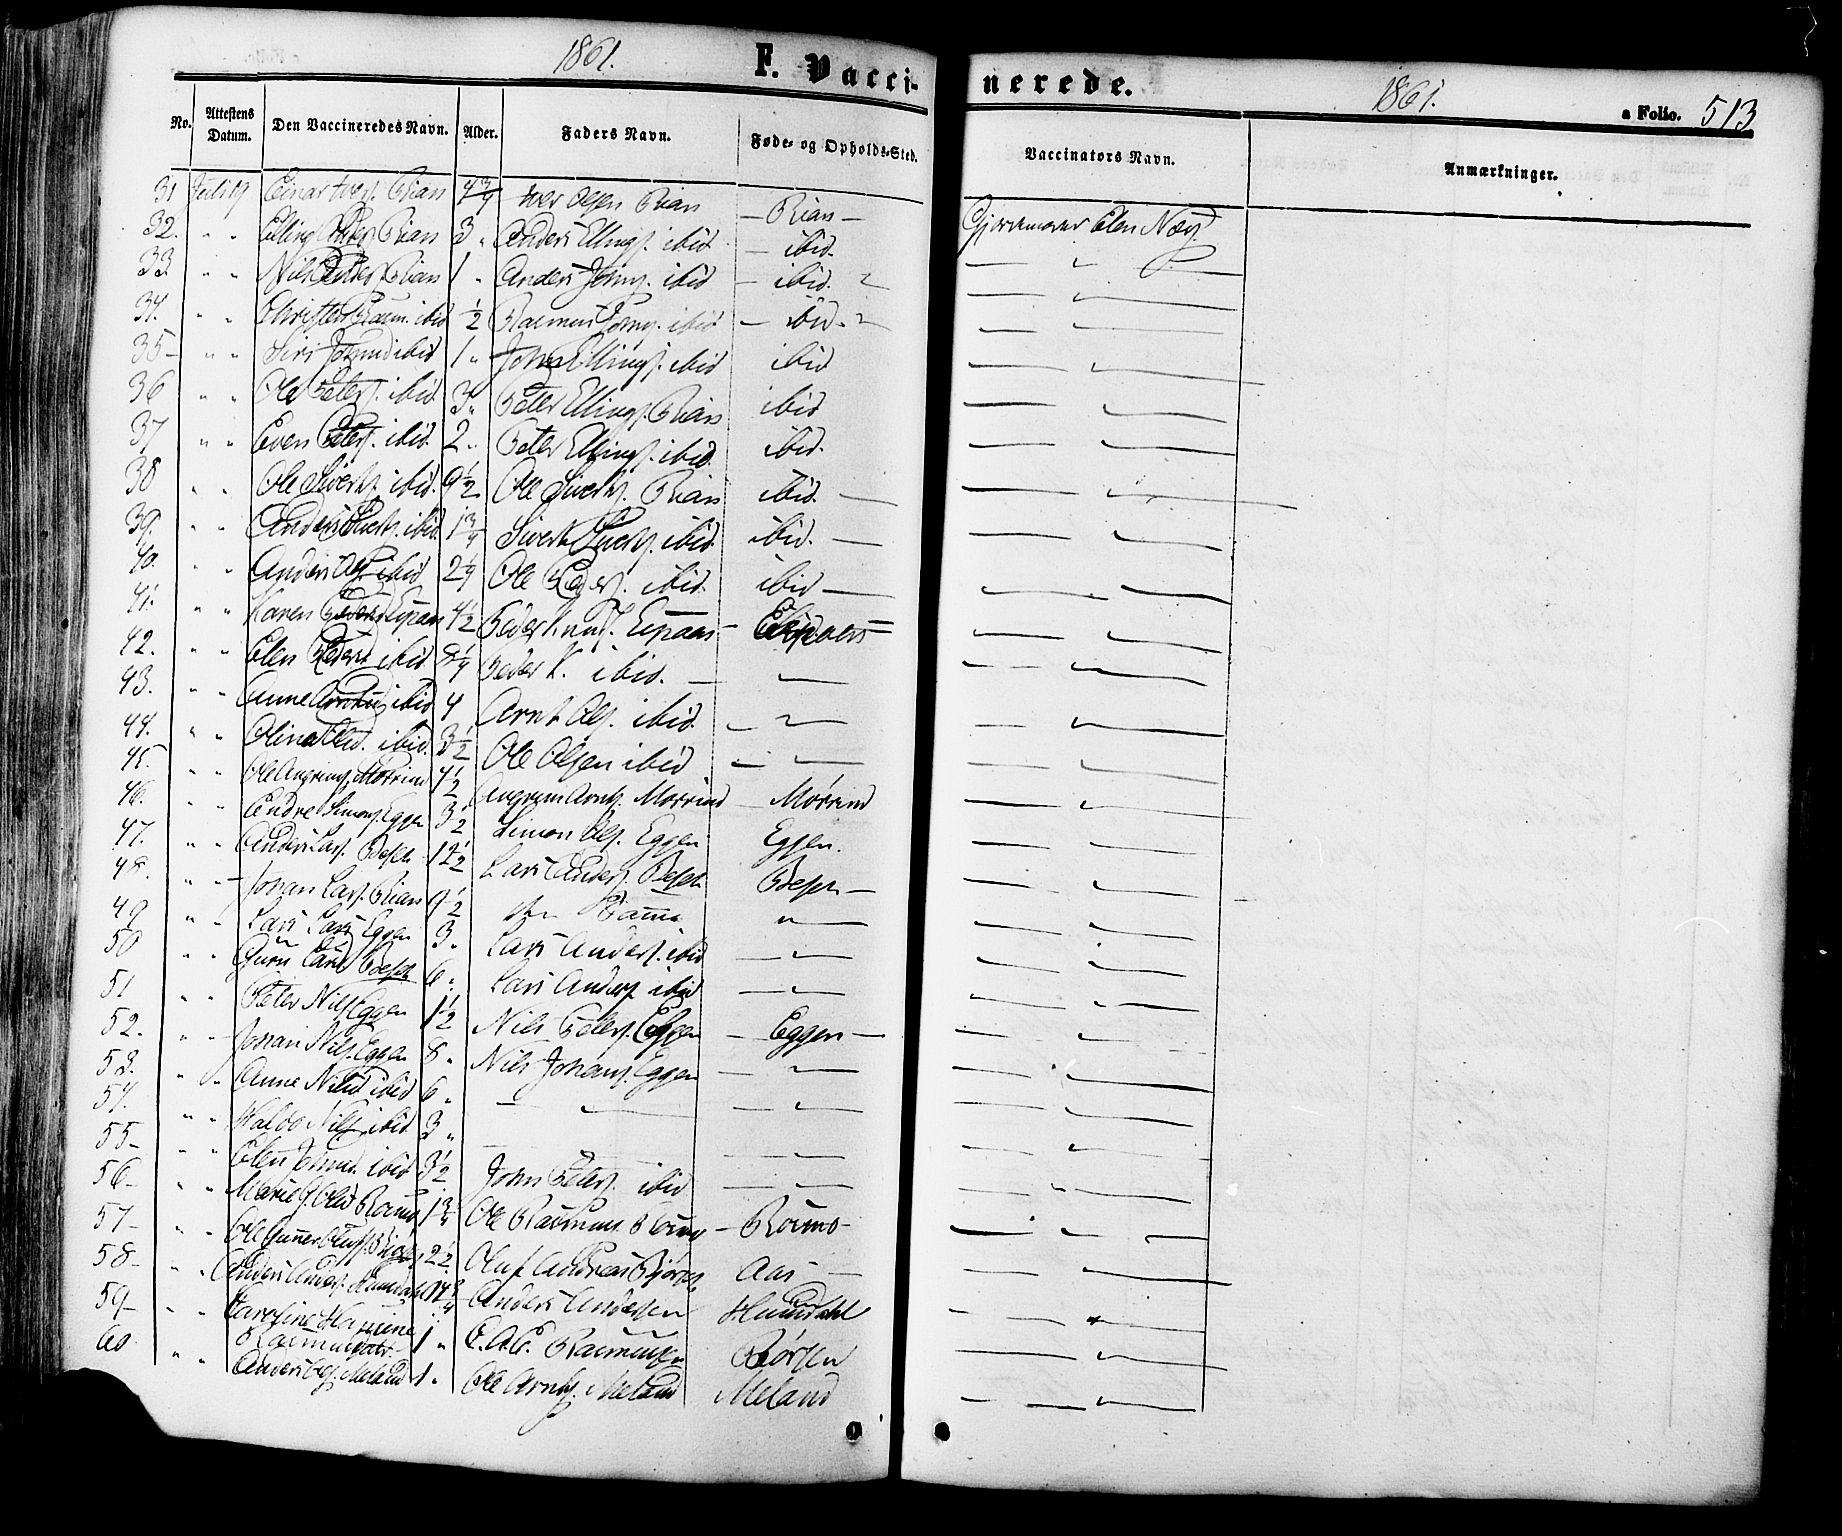 1861.
F. Vacci-
nerede.
1861.
a Folio. 513
No. Attestens Datum. Den Vaccineredes Navn. Alder. Faders Navn. Føde- og Opholds-Sted.
Vaccinators Navn. Anmærkninger.
31 Juli 19 Einar Rian 4 3/4 Iver Olsen Rian — Rian —
Gjordemoder Elen
32. " " Elling Anders. Rian 3 " Anders Ellings. ibid — ibid.
33 " " Nils Anders. Rian 1 " Anders Johns. ibid — ibid. "
34. " " Rasm. ibid 1/2 Rasmus Johns. ibid — ibid. "
35 — " " Siri Johnsd ibid 1 " John Ellings. ibid ibid
36 " " Ole Peters. ibid 3 " Peter Ellings. Rian ibid
37 " " Even Peters. ibid. 2 " Peter Ellings. ibid. ibid.
38 " " Ole Siverts. ibid. 9 1/2 Ole Siverts. Rian ibid. —
39. " " Anders Siverts. ibid. 1 3/4 Sivert Siverts. ibid. ibid. —
40. " " Anders Ols. ibid 2 1/4 Ole Peders. ibid. ibid —
41. " " Karen Pedersd Espaas 4 1/2 Peder Knuds. Espaas — Espaas
42. " " Elen Pedersd ibid 8 1/4 Peder K. ibid. — "
43. " " Anne Arntsd ibid 4 Arnt Ols. ibid. — "
44. " " Olina Olsd. ibid. 3 1/2 Ole Olsen ibid — "
45. " " Ole Angrims. Morrind 4 1/2 Angrim Arnts. Morrind — Mórrind
46. " " Endre Simons. Eggen 3 1/2 Simon Ols. Eggen Eggen.
47. " " Anders Lars. 12 1/2 Lars Anders.
48. " " Johan Lars. Rian 9 1/2 "
49 " " Lars Lars. Eggen 3 " Lars Anders. ibid — "
50 " " Guru Larsd 6 " Lars Anders. ibid — "
51 " " Peter Nils. Eggen 1 1/2 Nils Peters. Eggen — Eggen —
52. " " Johan Nils. Eggen 8 " Nils Johans. Eggen — "
53. " " Anne Nilsd ibid 6 " — " — "
54. " " Haldo Nils. ibid. 3 " — — "
55 — " " Elen Johnsd. ibid 3 1/2 John Peters. ibid — "
56 — " " Marie G. Olsd 1 3/4 Ole Rasmus.
57 — " " Ole Gunner Olufs. 2 1/2 Oluf Andreas Aas —
58 — " " Anders Anders. Anders Andersen
59 — " " Caroline 1 " Rasmussen Børsen
60 " " Anders Ols. Meland 1 " Ole Arnts. Meland Meland